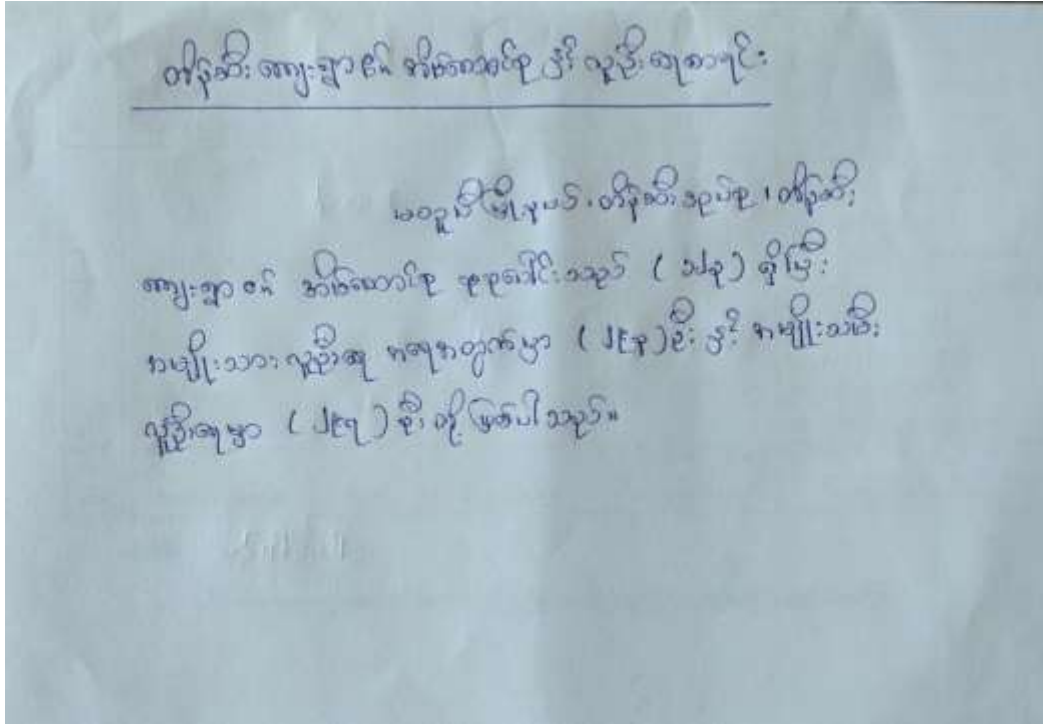 တိမ်ဆီး ကျေးရွာ ၏ အိမ်ထောင်စု နှင့် လူဦးရေစာရင်း
မတူပီမြို့နယ်၊ တိမ်ဆီးအုပ်စု၊ တိမ်ဆီး
ကျေးရွာ ၏ အိမ်ထောင်စု စုစုပေါင်းသည် ( ) ရှိပြီး
အမျိုးသားလူဦးရေ အရေအတွက်မှာ ( ) ဦး နှင့် အမျိုးသမီး
လူဦးရေမှာ ( ) ဦး တို့ ဖြစ်ပါသည်။